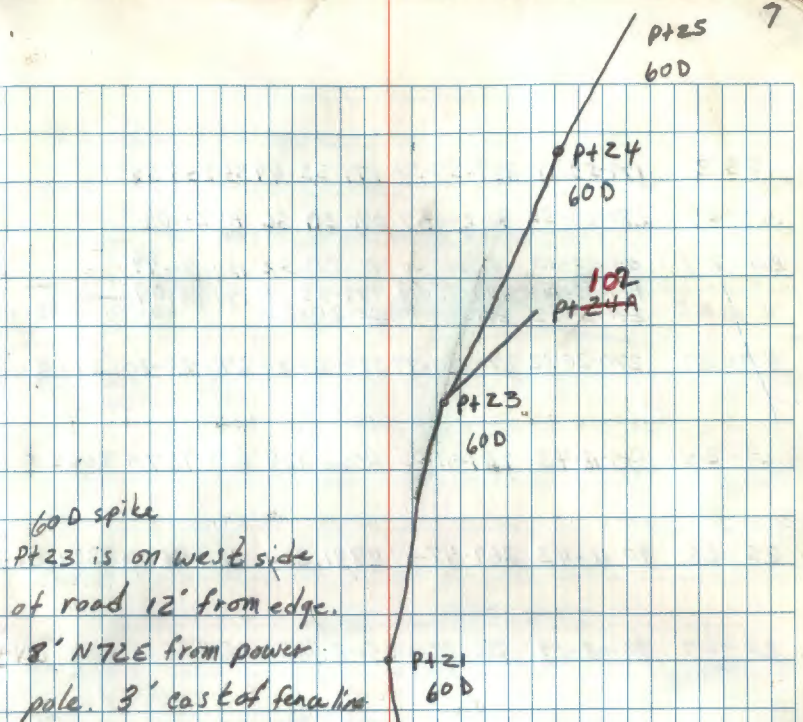 7
pt25
60D
pt24
60D
102
pt24A
pt23
60D
60D spike
pt23 is on west side
of road 12' from edge.
8' N72E from power
pole. 3' east of fence line
pt21
60D